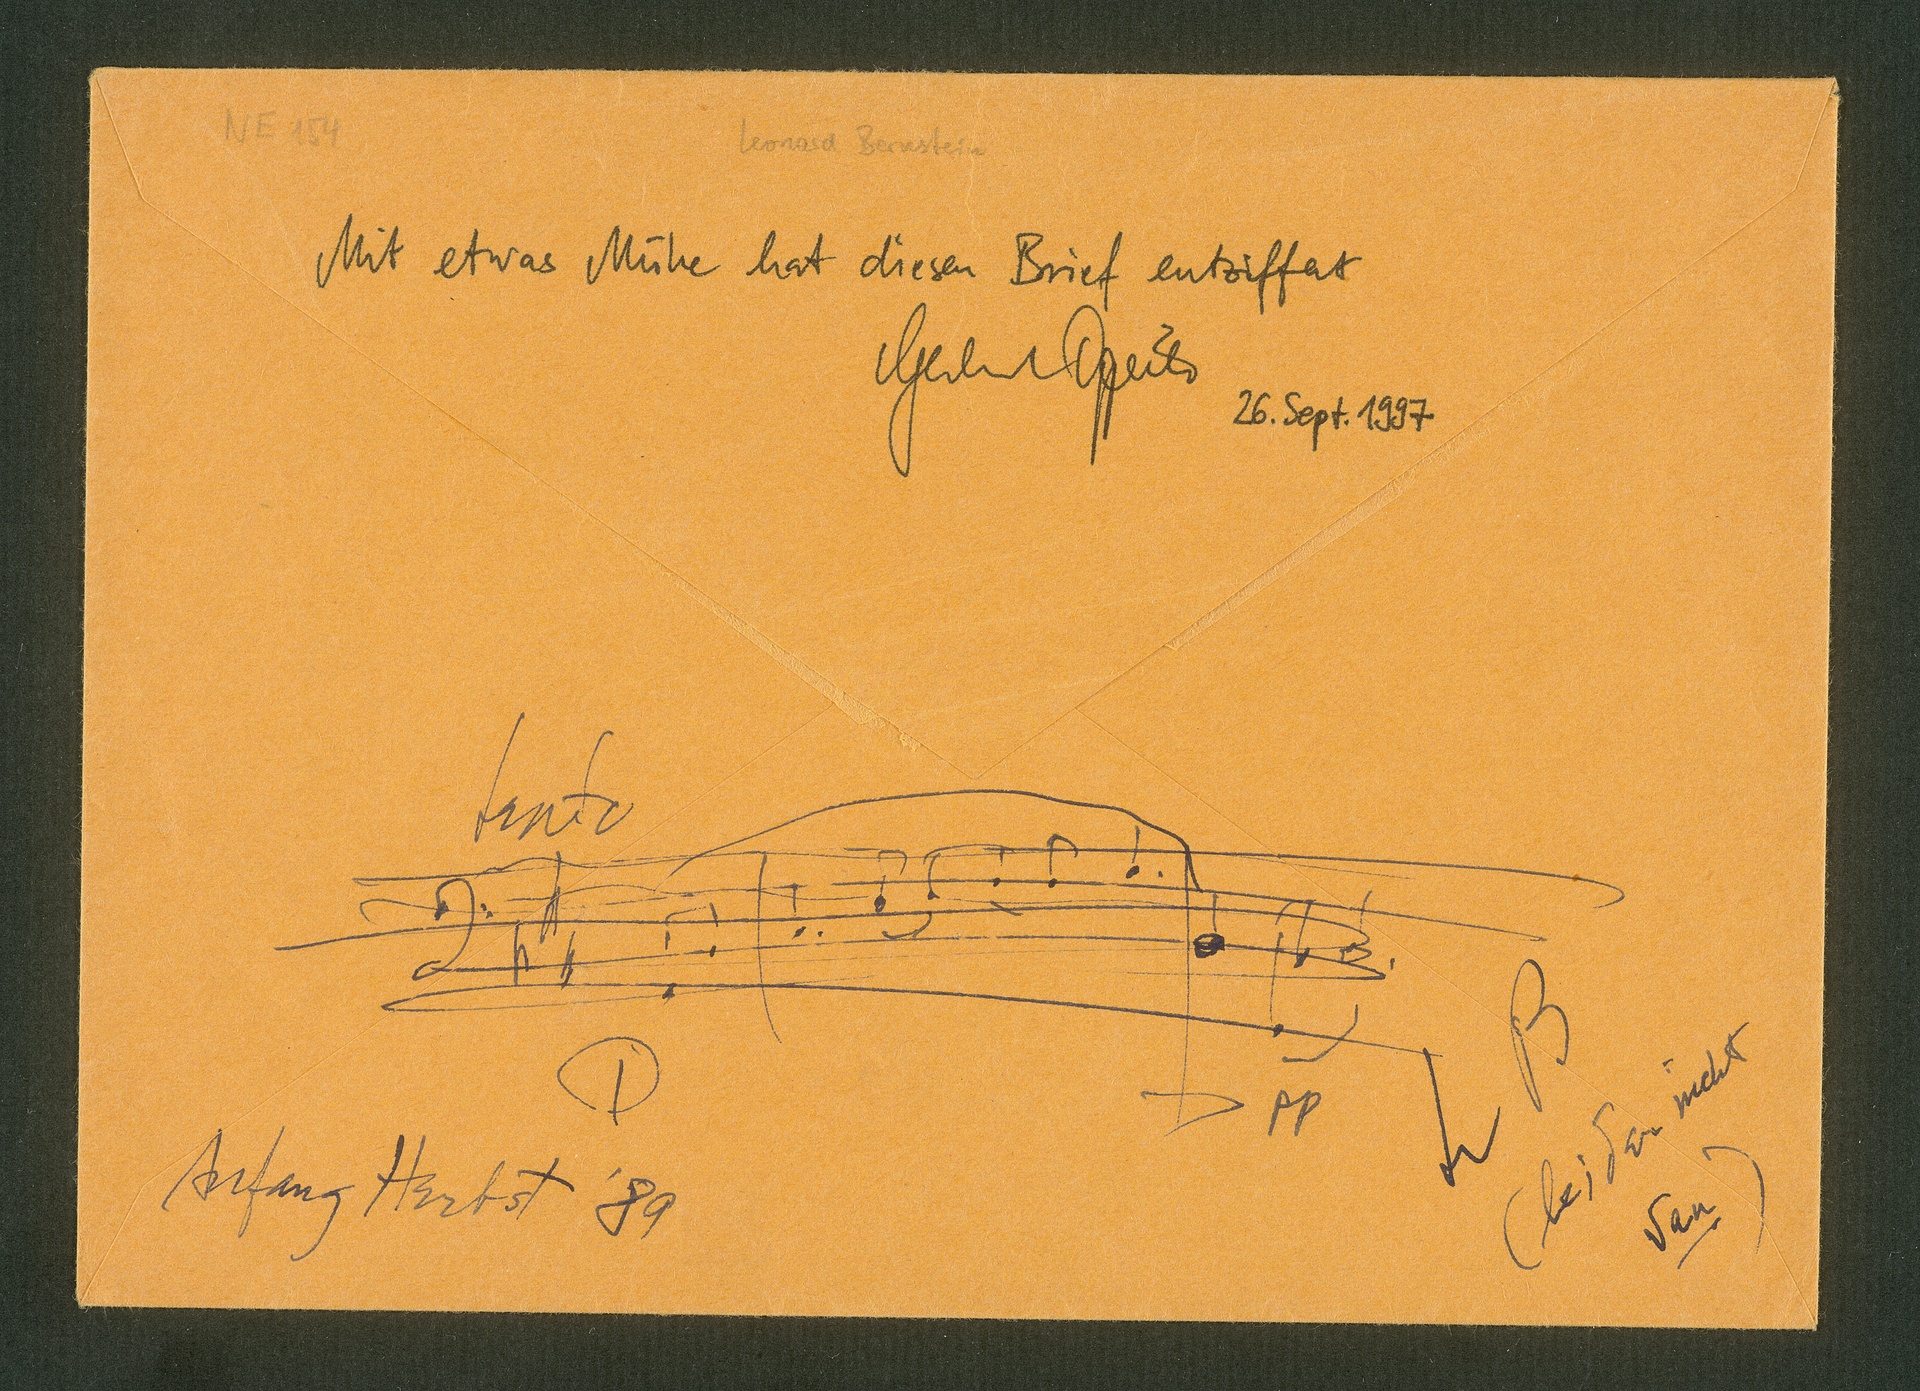 NE 154
Leonard Bernstein
Mit etwas Mühe hat diesen Brief entziffert
Gerhard Oppitz
26. Sept. 1997
Lento
pp
Anfang Herbst '89
B
(leider nicht
van)